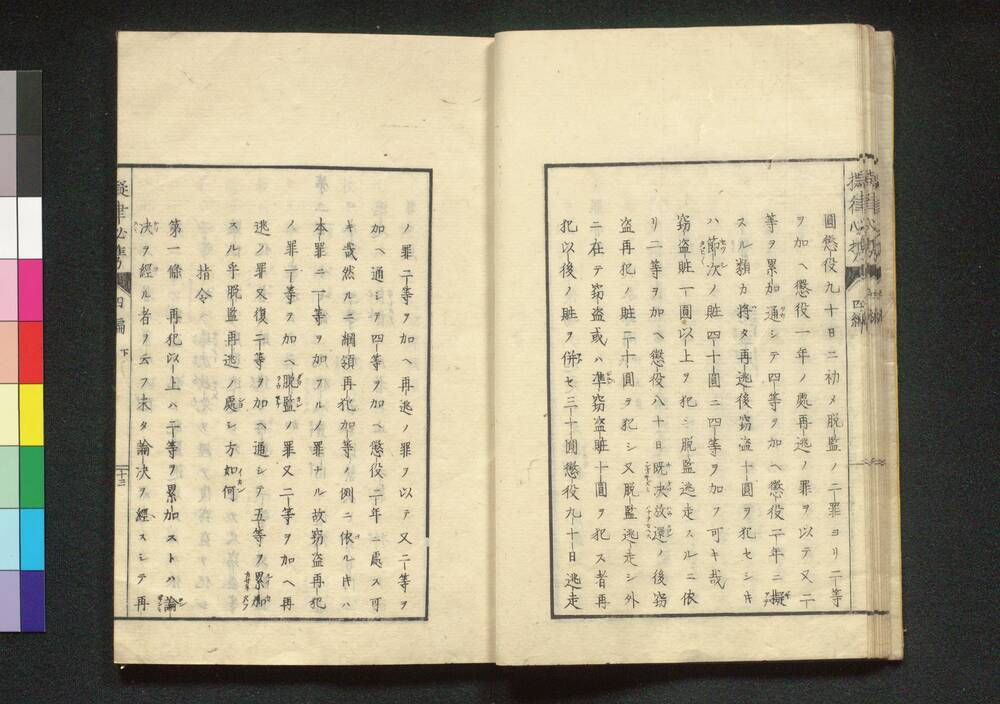 圓懲役九十日ニ初メ脱監ノ二罪ヨリ二等
ヲ加ヘ懲役一年ノ處再逃ノ罪ヲ以テ又二
等ヲ累加通シテ四等ヲ加ヘ懲役二年ニ擬
スル類カ将タ再逃後窃盗十圓ヲ犯セシキ
ハ節次ノ賍四十圓ニ四等ヲ加フ可キ哉
窃盗賍一圓以上ヲ犯シ脱監逃走スルニ依
リ二等ヲ加ヘ懲役八十日既决放還ノ後窃
盗再犯ノ賍二十圓ヲ犯シ又脱監逃走シ外
ニ在テ窃盗或ハ準窃盗賍十圓ヲ犯ス者再
犯以後ノ賍ヲ併セ三十圓懲役九十日逃走
ノ罪二等ヲ加ヘ再逃ノ罪ヲ以テ又二等ヲ
加ヘ通シテ四等ヲ加ヘ懲役二年ニ處ス可
キ哉然ルニ綱領再犯加等ノ例ニ依ルキハ
本罪ニ一等ヲ加フルノ罪ナル故窃盗再犯
ノ罪一等ヲ加ヘ脱監ノ罪又二等ヲ加ヘ再
逃ノ罪又復二等ヲ加ヘ通シテ五等ヲ累加
スル乎脱監再逃ノ處シ方如何
指令
第一條 再犯以上ハ二等ヲ累加ストハ論
决ヲ經ル者ヲ云フ未タ論决ヲ經スシテ再
擬律必携 四編 下 十三